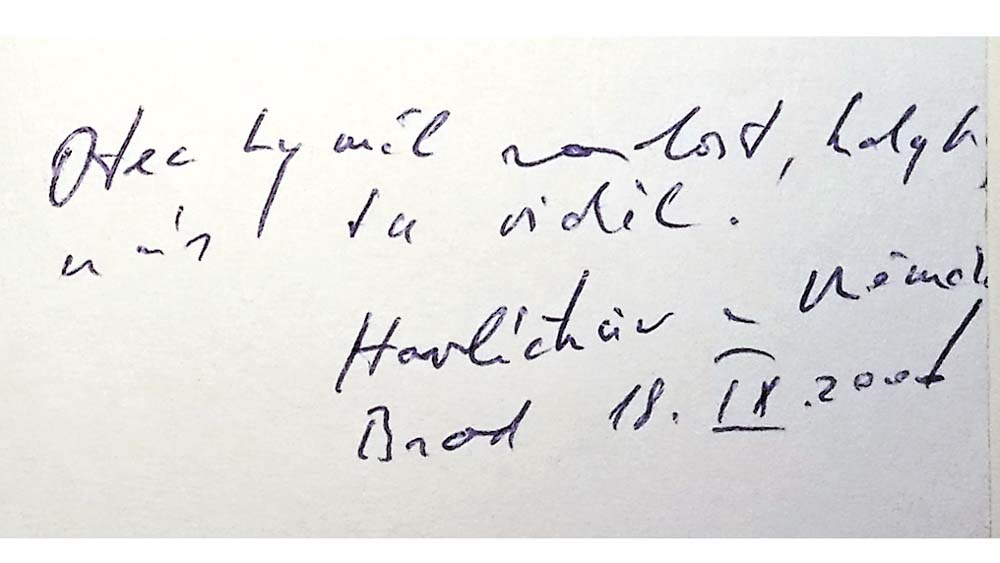 Otec by měl radost, kdyby
nás tu viděl.
Havlíčkův a
Brod 18. IX. 2000